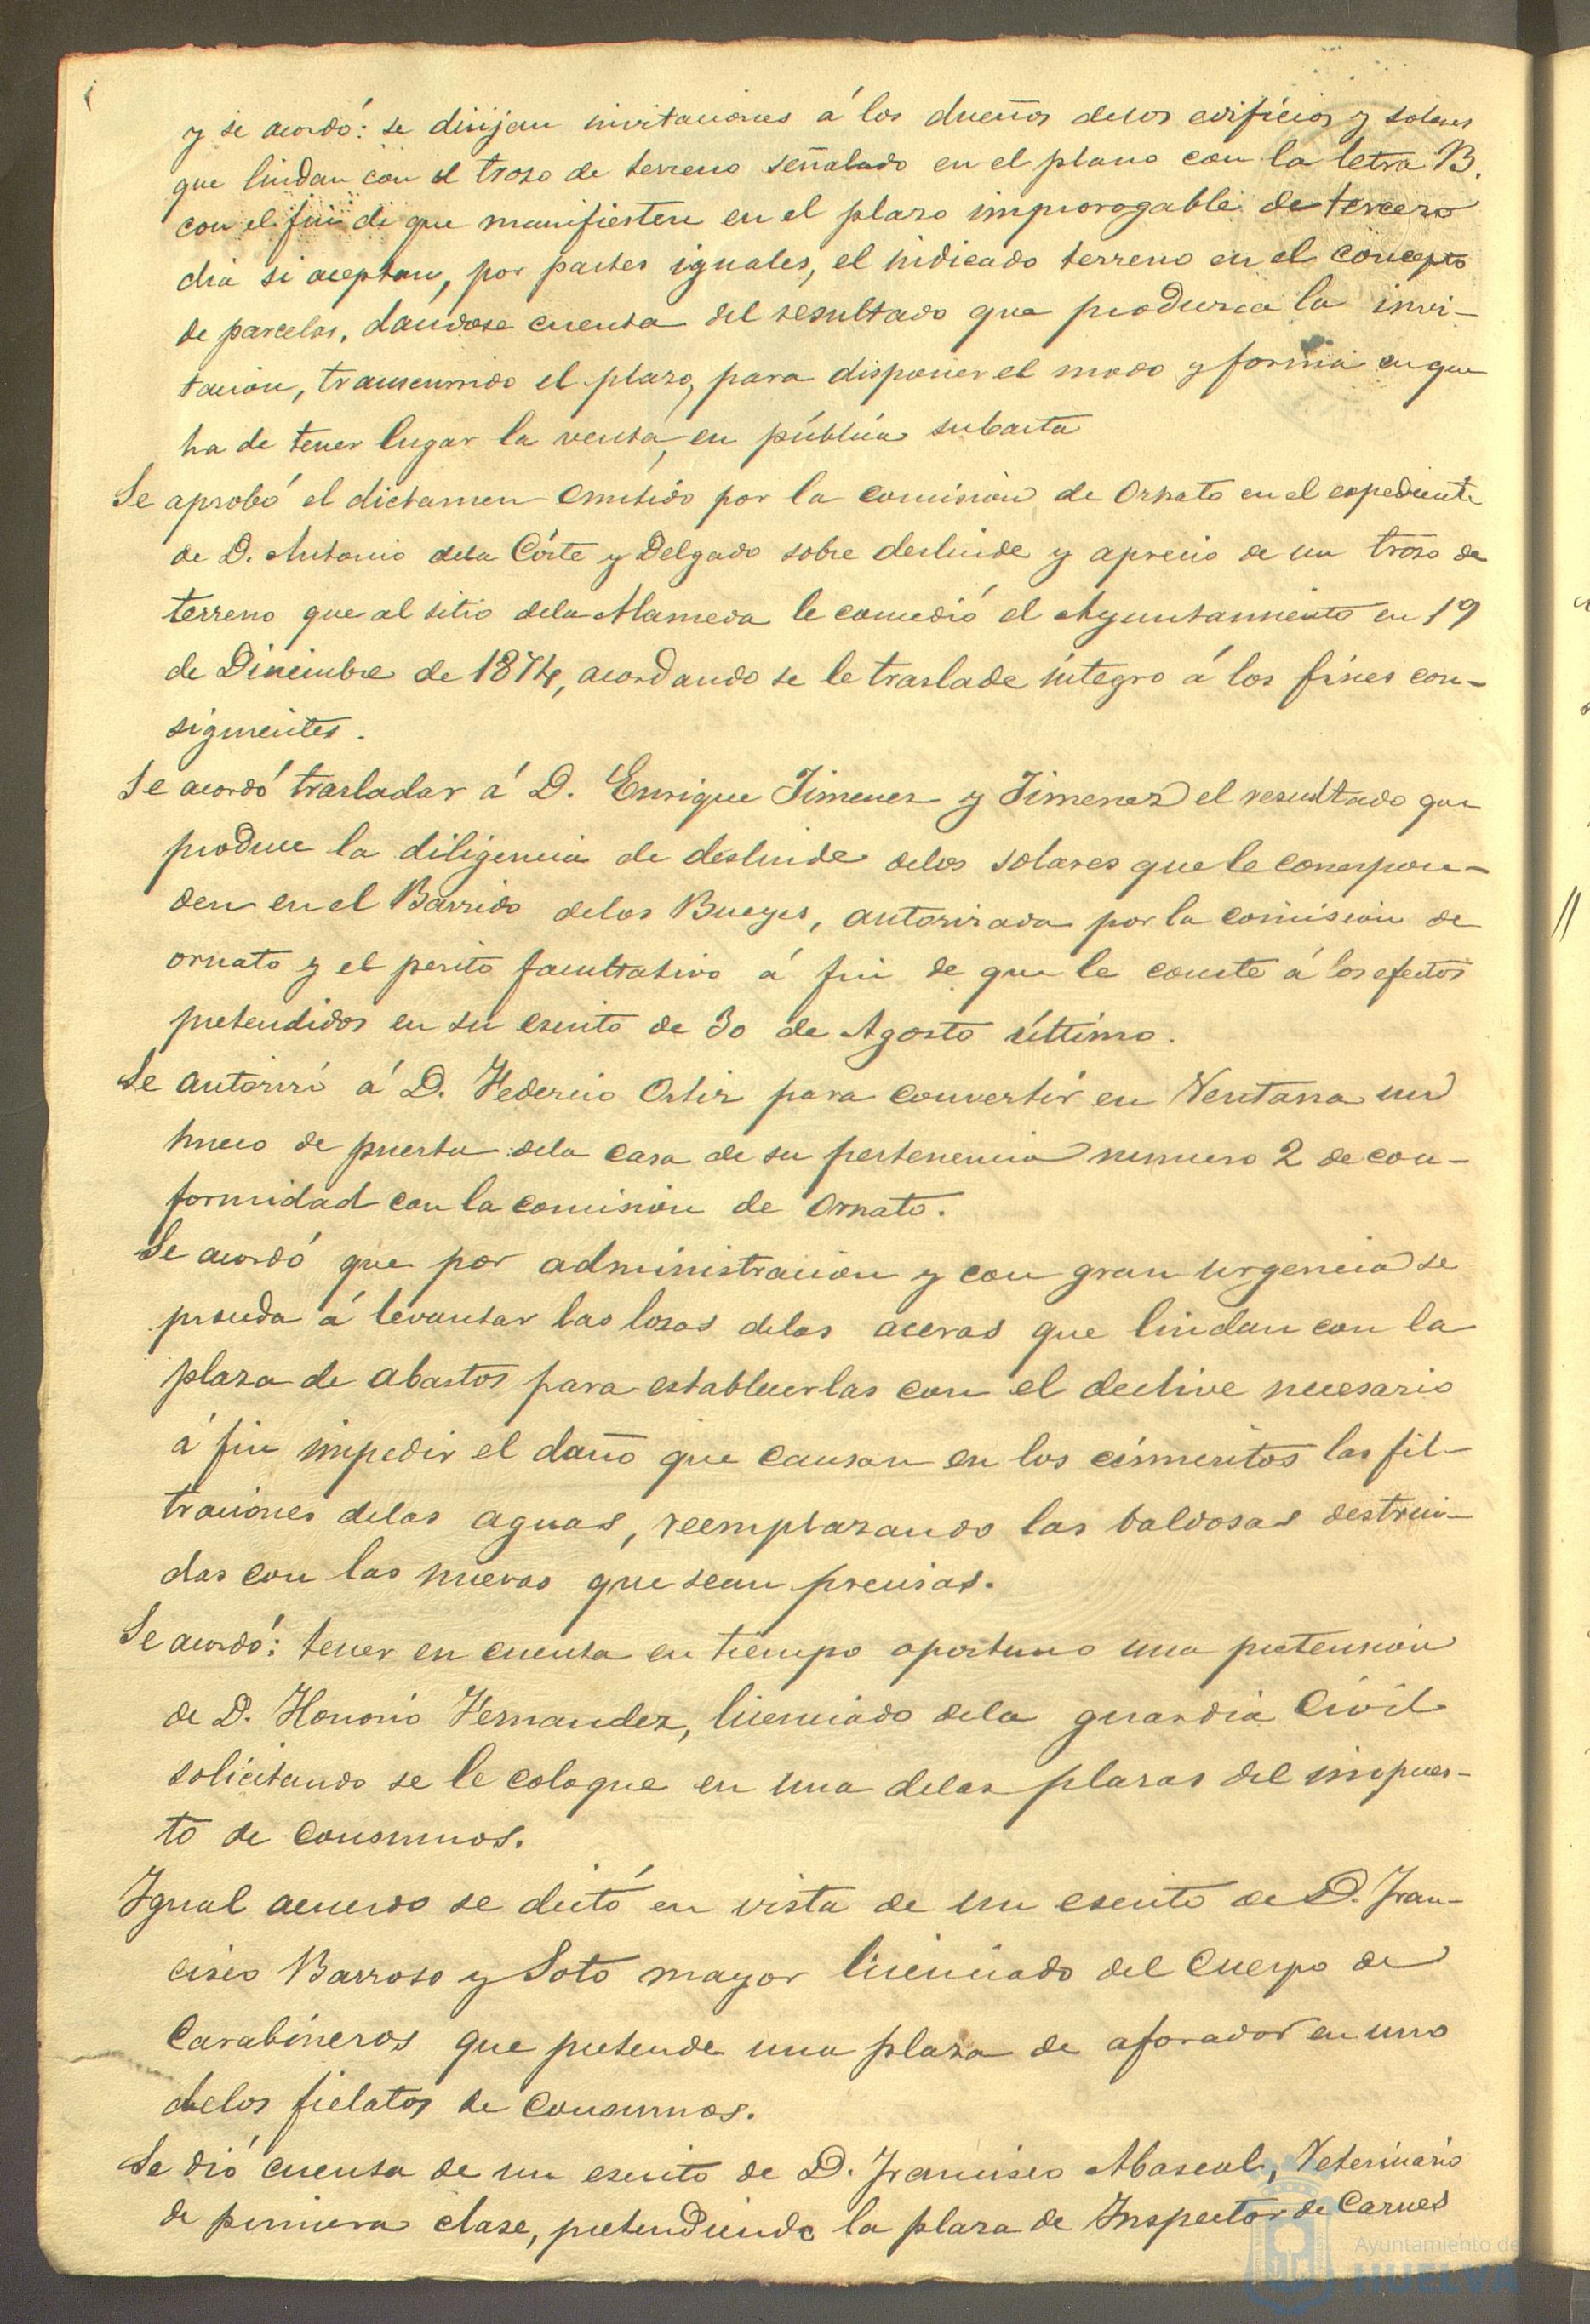 y se acordó: se dirijan invitaciones á los dueños delos edificios y solares
que lindan con el trozo de terreno señalado en el plano con la letra B.
con el fin de que manifiesten en el plazo improrogable de tercero
dia si aceptan, por partes iguales, el indicado terreno en el concepto
de parcelas, dandose cuenta del resultado que produzca la invi-
tacion, transcurrido el plazo, para disponer el modo y forma en que
ha de tener lugar la venta, en pública subasta
Se aprobó el dictamen emitido por la comision de Ornato en el espediente
de D. Antonio dela Córte y Delgado sobre deslinde y aprecio de un trozo de
terreno que al sitio dela Alameda le concedió el Ayuntamiento en 19
de Diciembre de 1874, acordando se le traslade íntegro á los fines con-
siguientes.
Se acordó trasladar á D. Enrique Jimenez y Jimenez el resultado que
produce la diligencia de deslinde delos solares que le correspon-
den en el Barrido delos Bueyes, autorizada por la comision de
ornato y el perito facultativo á fin de que le conste á los efectos
pretendidos en su escrito de 30 de Agosto último.
Se autorizó á D. Federico Ortiz para convertir en Ventana un
hueco de puerta dela casa de su pertenencia numero 2 de con-
formidad con la comision de Ornato.
Se acordó que por administracion y con gran urgencia se
proceda á levantar las losas delas aceras que lindan con la
plaza de abastos para establecerlas con el declive necesario
á fin impedir el daño que causan en los cimientos las fil-
traciones delas aguas, reemplazando las baldosas destrui-
das con las nuevas que sean precisas.
Se acordó: tener en cuenta en tiempo oportuno una pretension
de D. Honorio Fernandez, licenciado dela guardia Civil
solicitando se le coloque en una delas plazas del impues-
to de consumos.
Igual acuerdo se dictó en vista de un escrito de D. Fran-
cisco Barroso y Soto mayor licenciado del Cuerpo de
Carabineros que pretende una plaza de aforador en uno
delos fielatos de consumos.
Se dió cuenta de un escrito de D. Francisco Mascul, Veterinario
de primera clase, pretendiendo la plaza de Inspector de Carnes
Ayuntamiento de
HUELVA